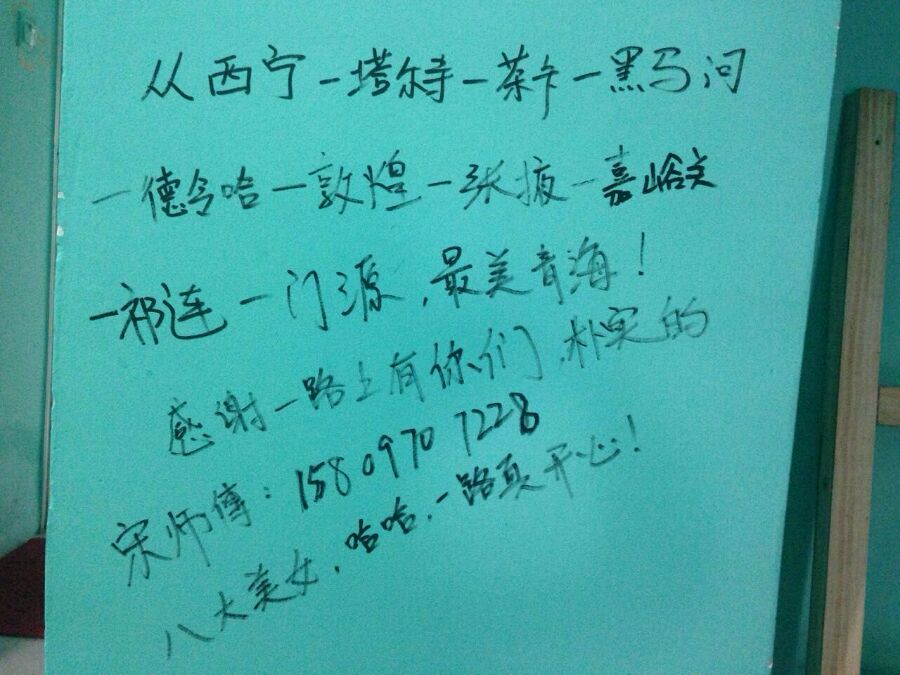 从西宁一塔尔寺一茶卡一黑马河
一德令哈一敦煌一张掖一嘉峪关
一祁连一门源，最美青海！
感谢一路上有你们，朴实的
宋师傅：15809707228
八大美女，哈哈，一路真开心！